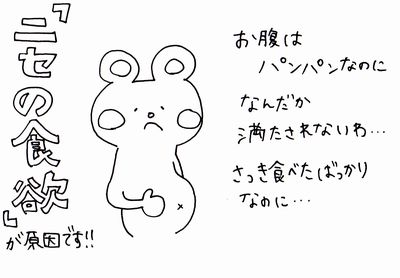 『ニセの食欲』
が原因です!!
お腹は
パンパンなのに
なんだか
満たされないわ…
さっき食べたばっかり
なのに…